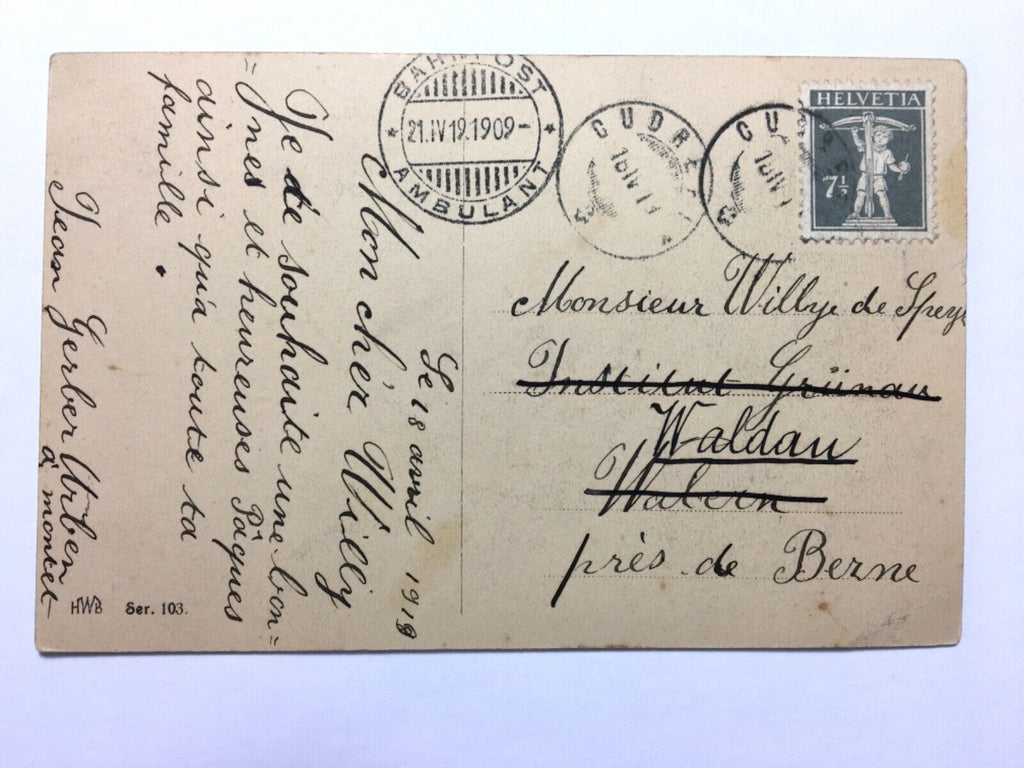 BAHNPOST
21.IV19.1909-
AMBULANT
CUDREFIN
HELVETIA
7½
Le 18 avril 1919
Mon chèr Willy
Je de souhaite une bon=
=ynes et heureuses Pâques
ainsi qu'a toute ta
famille.
Jean Gerber Urben
à montet
HWB Ser. 103.
Monsieur Willye de Speyr
Institut Grünau
Waldau
Wabern
près de Berne